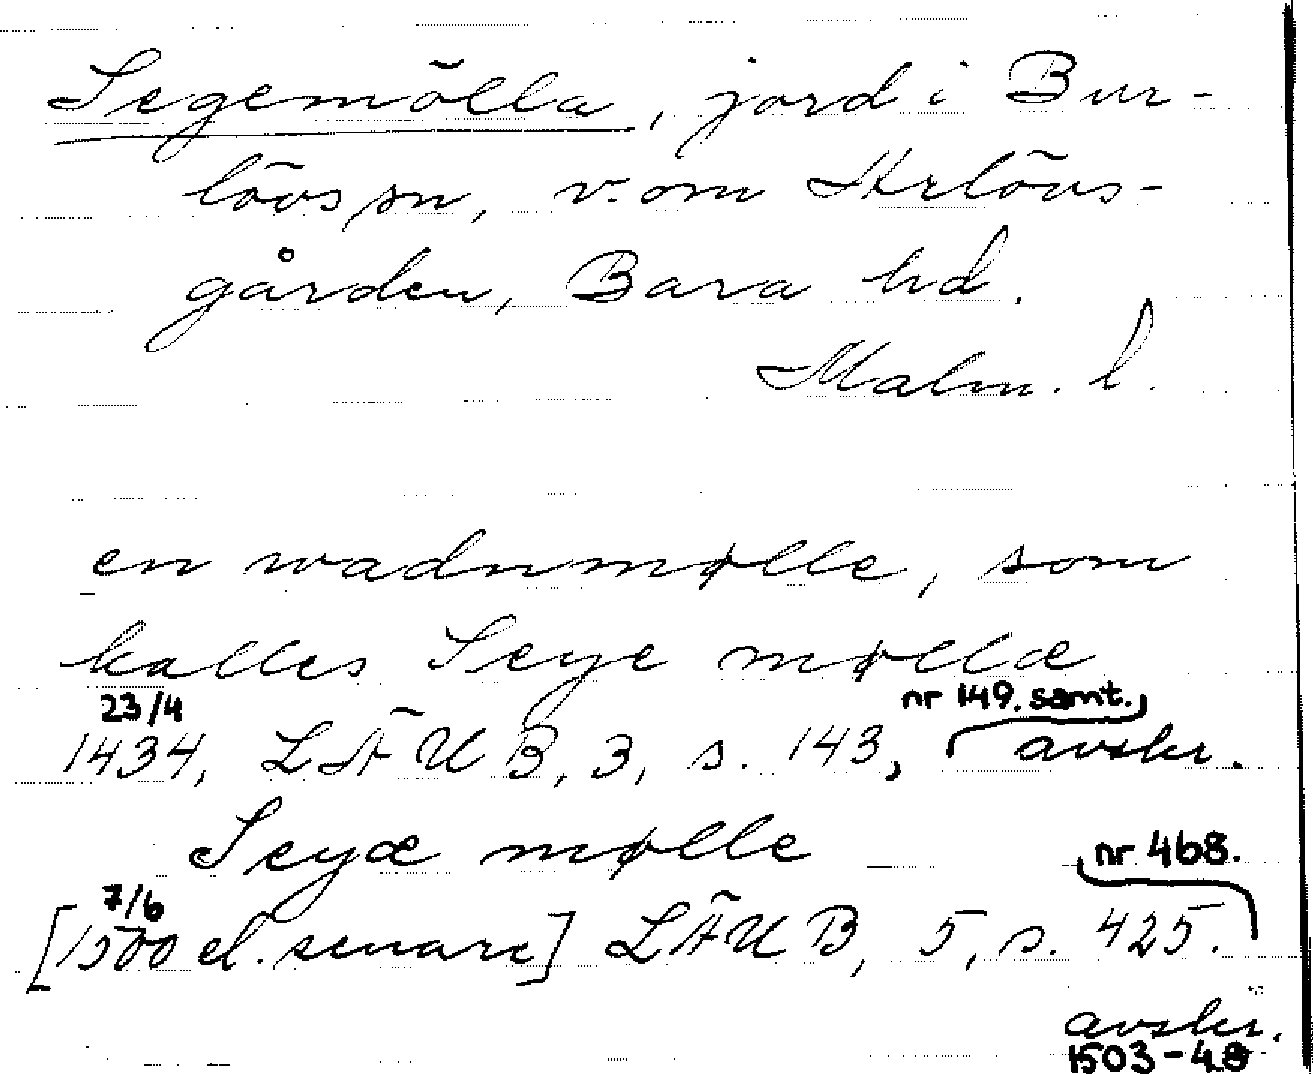 Segemölla, jord i Bur-
lövs sn, v. om Arlövs-
gården, Bara hd.
Malm. l.
en wadnmølle, som
kalles Seye møllæ
23/4 nr 149. samt.
1434, LÄUB, 3, s. 143, avskr.
Seyæ mølle
7/6 nr 468.
[1500 el. senare] LÄUB, 5, s. 425.
avskr.
1503-48